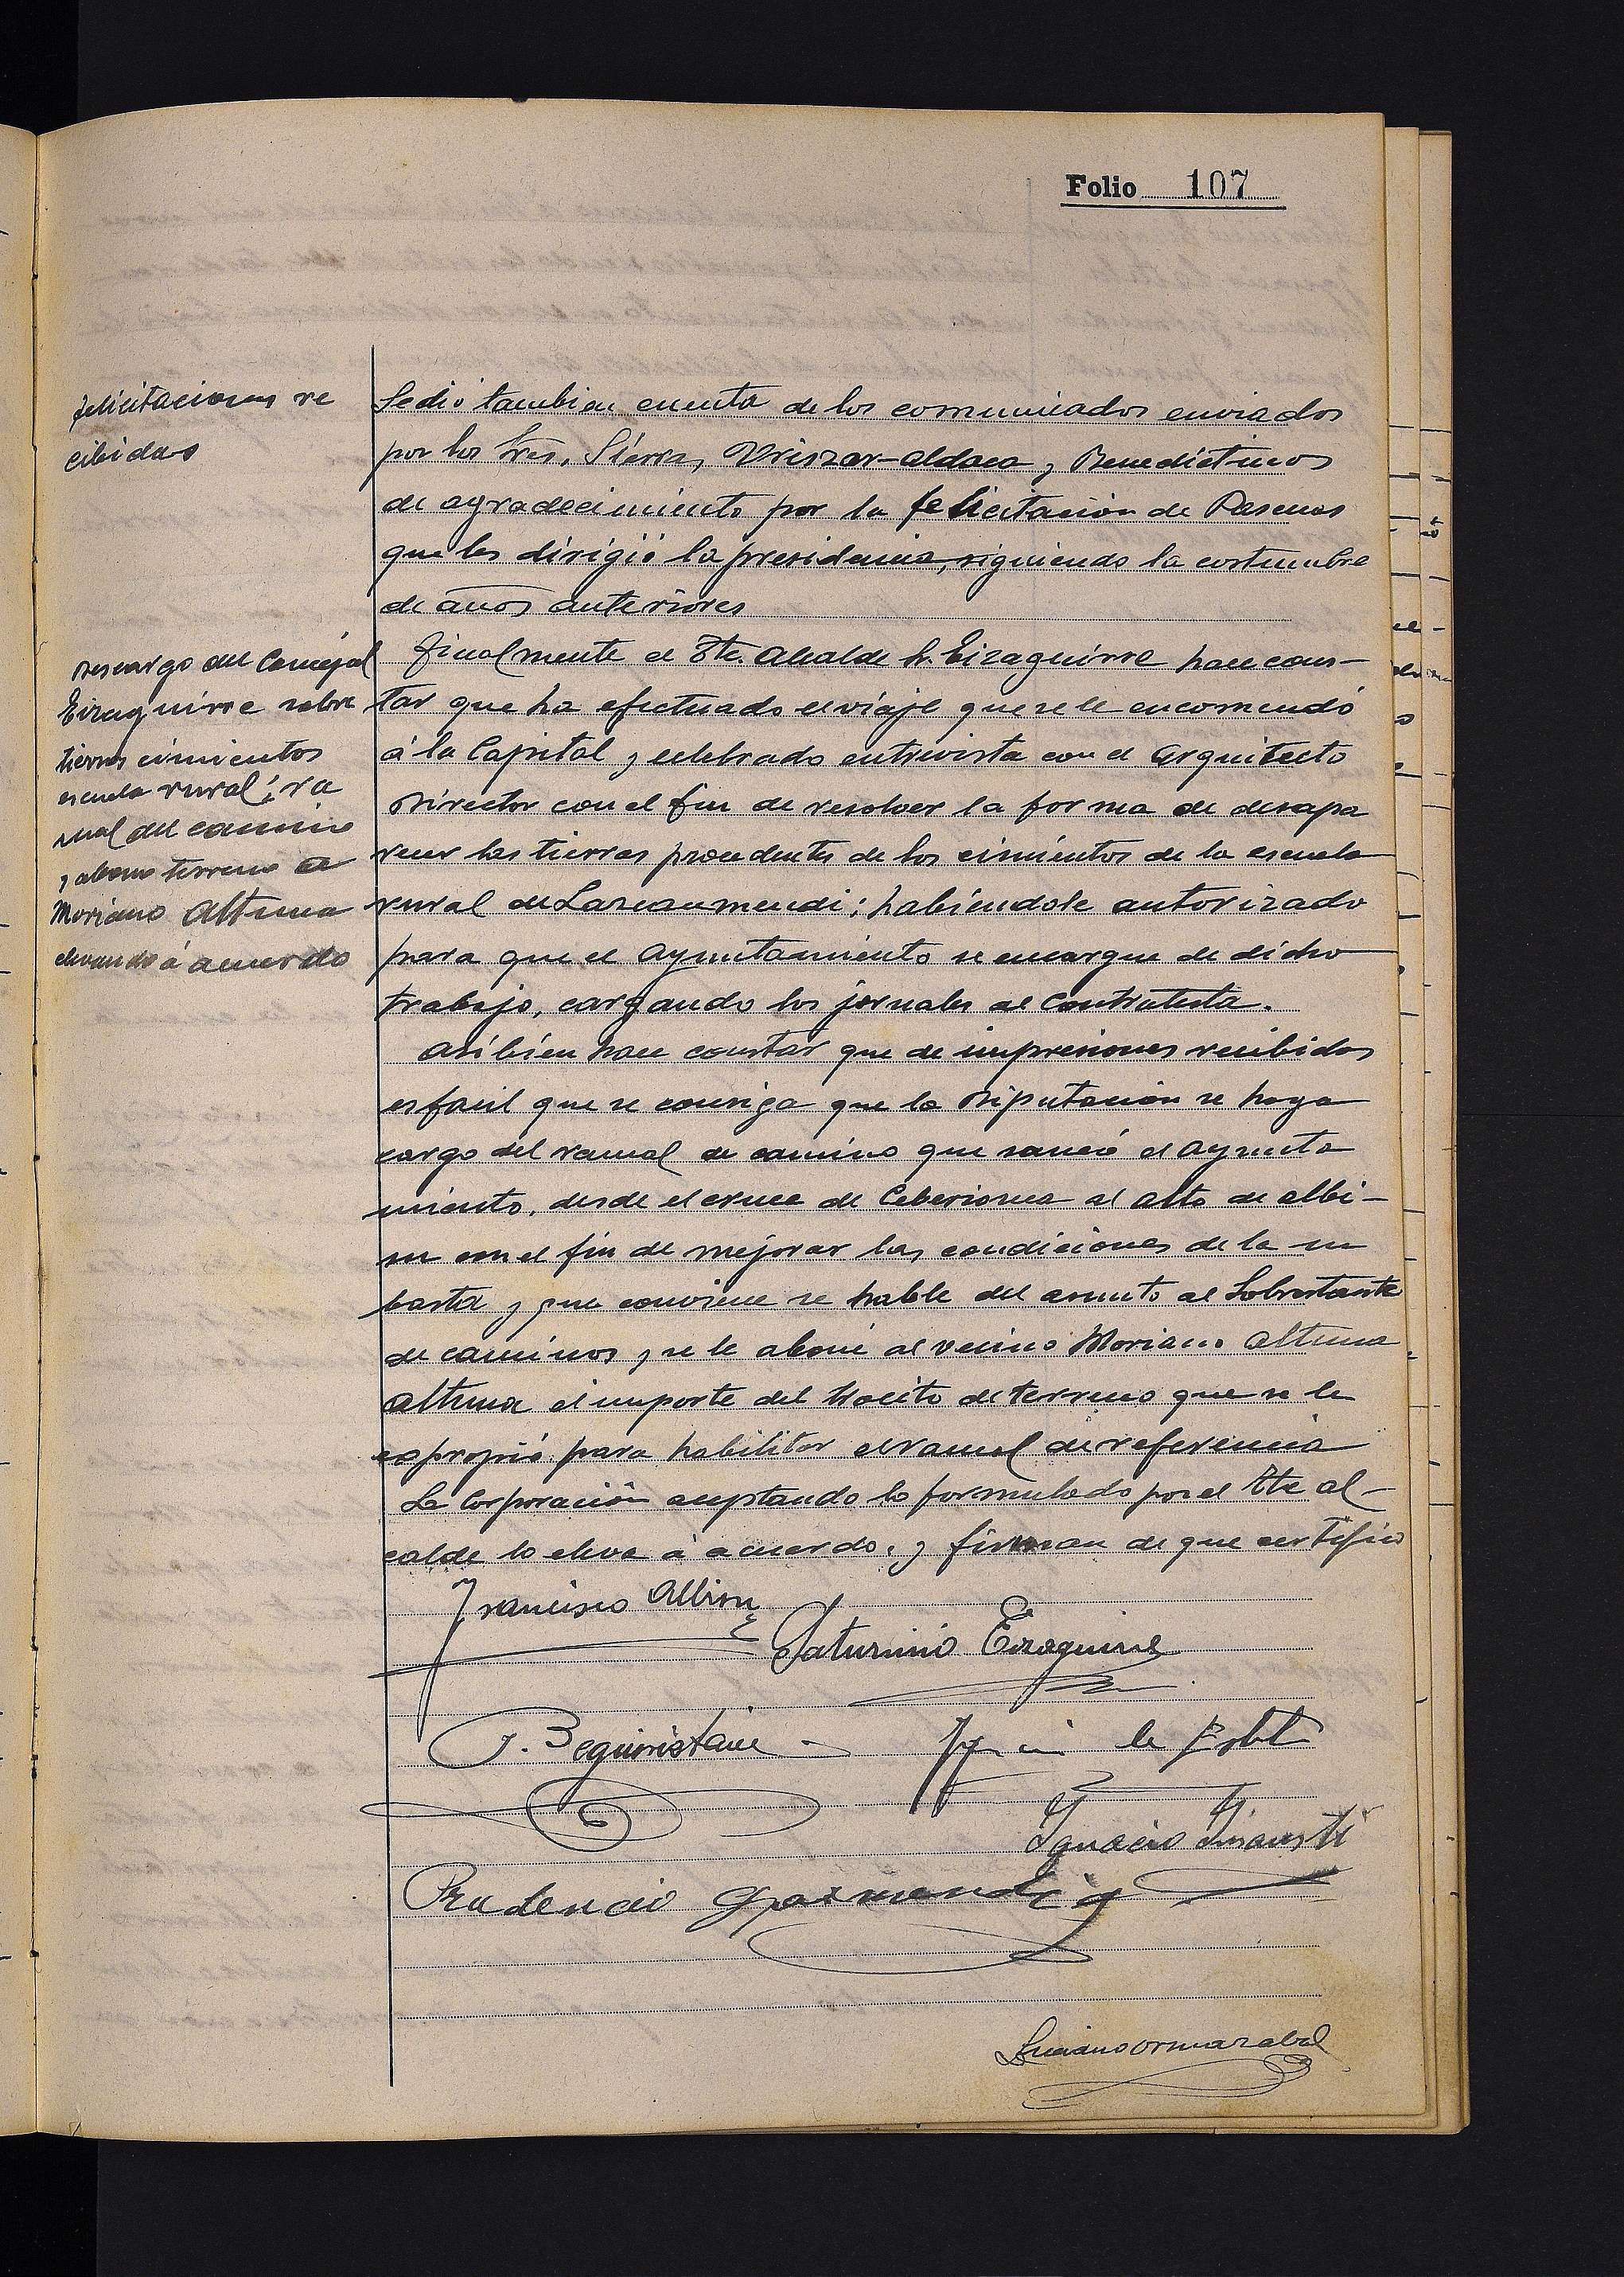 Folio 107
felicitaciones re
cibidas
Se dió tambien cuenta de los comunicados enviados
por los Sres, Sierra, Uriszar-aldaca y Benedictinos
de agradecimiento por la felicitación de Pascuas
que les dirigió la presidencia, siguiendo la costumbre
de años anteriores
Descargo del Concejal
Eizaguirre sobre
tierras cimientos
escuela rural; ra
mal del camino
y abono terreno a
Moriano Altuna
elevando á acuerdo
finalmente el Tte. Alcalde Sr. Eizaguirre hace cons-
tar que ha efectuado el viaje que se le encomendó
á la Capital y celebrado entrevista con el Arquitecto
Director con el fin de resolver la forma de desapa
recer las tierras procedentes de los cimientos de la escuela
rural de Lazcaumendi; habiéndole autorizado
para que el Ayuntamiento se encargue de dicho
trabajo, cargando los jornales al Contratista.
Asi bien hace constar que de impresiones recibidas
es facil que se consiga que la Diputación se haga
cargo del ramal de camino que saneó el Ayunta
miento, desde el cruce de Ceberiorea al alto de albi-
su con el fin de mejorar las condiciones de la su
basta y que conviene se hable del asunto al Sobrestante
de caminos y se le abone al vecino Moriano Altuna
Altuna el importe del trocito de terreno que se le
expropió para habilitar el ramal de referencia
La Corporación aceptando lo formulado por el Tte al-
calde lo eleva á acuerdo. y firman de que certifico
Francisco Albisu
Saturnino Eizaguirre
J. Beguiristain
Ignacio
Ignacio Insausti
Prudencio Garmendia
Luciano Ormazabal